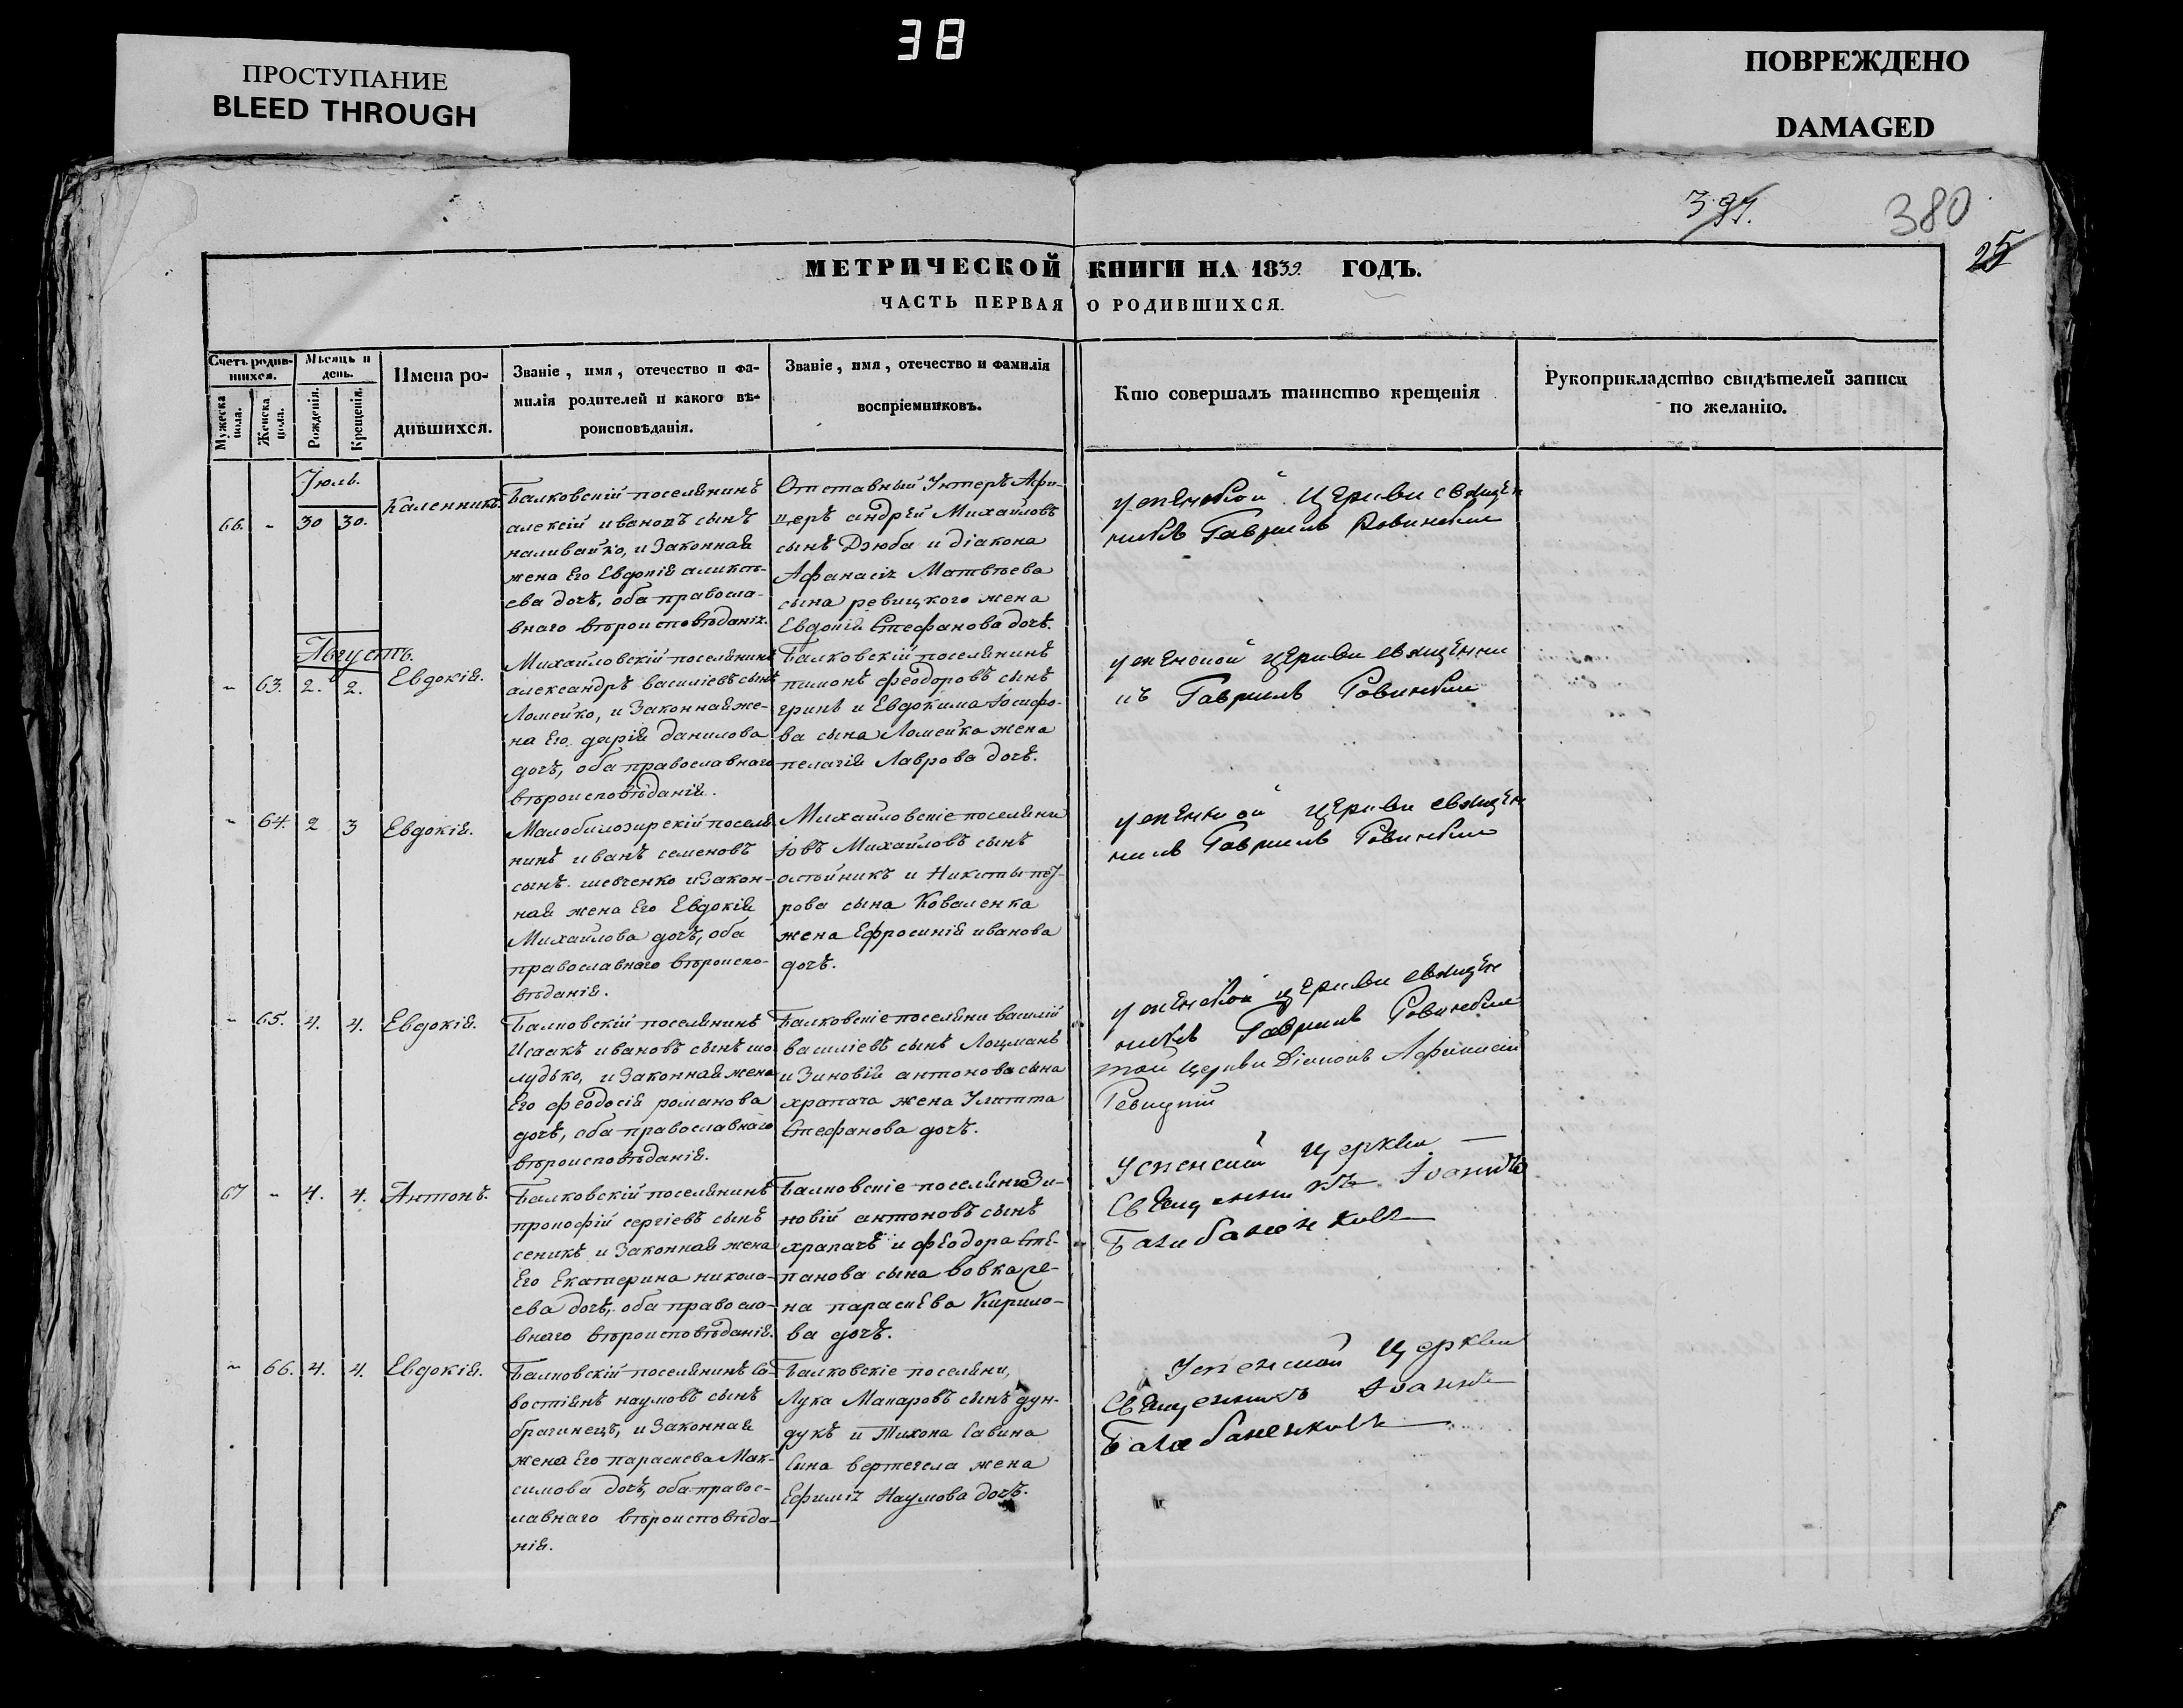 38
ПРОСТУПАНИЕ
BLEED THROUGH
ПОВРЕЖДЕНО
DAMAGED
380
25
МЕТРИЧЕСКОЙ КНИГИ НА 1839. ГОДЪ.
ЧАСТЬ ПЕРВАЯ О РОДИВШИХСЯ.
Счетъ родив-
шихся.
Мужеска
пола.
Женска
пола.
Мѣсяць и
день.
Рожденія.
Крещенія.
Имена ро-
дившихся.
Званіе, имя, отечество и фа-
милія родителей и какого вѣ-
роисповѣданія.
Званіе, имя, отечество и фамилія
воспріемниковъ.
Кто совершалъ таинство крещенія
Рукоприкладство свидѣтелей записи
по желанію.
Іюль.
66. - 30 30.
Каленникъ
Балковскій поселянинъ
алексій ивановъ сынъ
наливайко, и Законная
жена Его Евдокія аликсѣ-
ева дочь, оба правосла-
внаго вѣроисповѣданія.
Отставный Унтеръ Афи-
церъ андрей Михайловъ
сынъ Дзюба и діакона
Афанасія Матвѣева
сына ревицкого жена
Евдокія Стефанова дочь.
успенской Церкви священ
никъ Гавриилъ Ровинский
Августъ.
- 63. 2. 2.
Евдокія.
Михайловскій поселянинъ
александръ василіевъ сынъ
Ломейко, и Законная же-
на Его дарія данилова
дочь, оба православнаго
вѣроисповѣданія.
Балковскій поселянинъ
пимонъ феодоровъ сынъ
гринь и Евдокима Іосифо-
ва сына Ломейка жена
пелагія Лаврова дочь.
успенской церкви священни
къ Гавриилъ Ровинский
- 64. 2 3
Евдокія.
Малобилозирскій поселя-
нинъ иванъ семеновъ
сынъ шевченко и Закон-
ная жена Его Евдокія
Михайлова дочь, оба
православнаго вѣроиспо-
вѣданія.
Михайловскіе поселяни
Іовъ Михайловъ сынъ
и Никиты
рова сына Коваленка
жена Ефросинія иванова
дочь.
успенской церкви священ
никъ Гавриилъ Ровинский
- 65. 4. 4.
Евдокія.
Балковскій поселянинъ
Исаакъ ивановъ сынъ шо-
лудько, и Законная жена
Его феодосія романова
дочь, оба православнаго
вѣроисповѣданія.
Балковскіе поселяни василій
василіевъ сынъ Лоцманъ
и Зиновій антонова сына
храпача жена Улитта
Стефанова дочь.
успенской церкви священ
никъ Гавриилъ Ровинский
той церкви Діаконъ Афанасий
Ревицкий
67 - 4. 4.
Антонъ.
Балковскій поселянинъ
прокофій сергіевъ сынъ
сеникъ и Законная жена
Его Екатерина никола-
ева дочь, оба правосла-
внаго вѣроисповѣданія.
Балковскіе поселяни Зи-
новій антоновъ сынъ
храпачъ и феодора Сте-
панова сына вовка же-
на параскева Кирило-
ва дочь.
Успенской церкви
Священникъ Іоаннъ
Балабаненковъ
- 66. 4. 4.
Евдокія.
Балковскій поселянинъ са-
востіянъ наумовъ сынъ
брагинецъ, и Законная
жена Его параскева Мак-
симова дочь, оба правос-
лавнаго вѣроисповѣда-
нія.
Балковскіе поселяни,
Лука Макаровъ сынъ дун-
дукъ и Тихона Савина
Сына вертегела жена
Ефимія Наумова дочь.
Успенской церкви
Священникъ Іоаннъ
Балабаненковъ